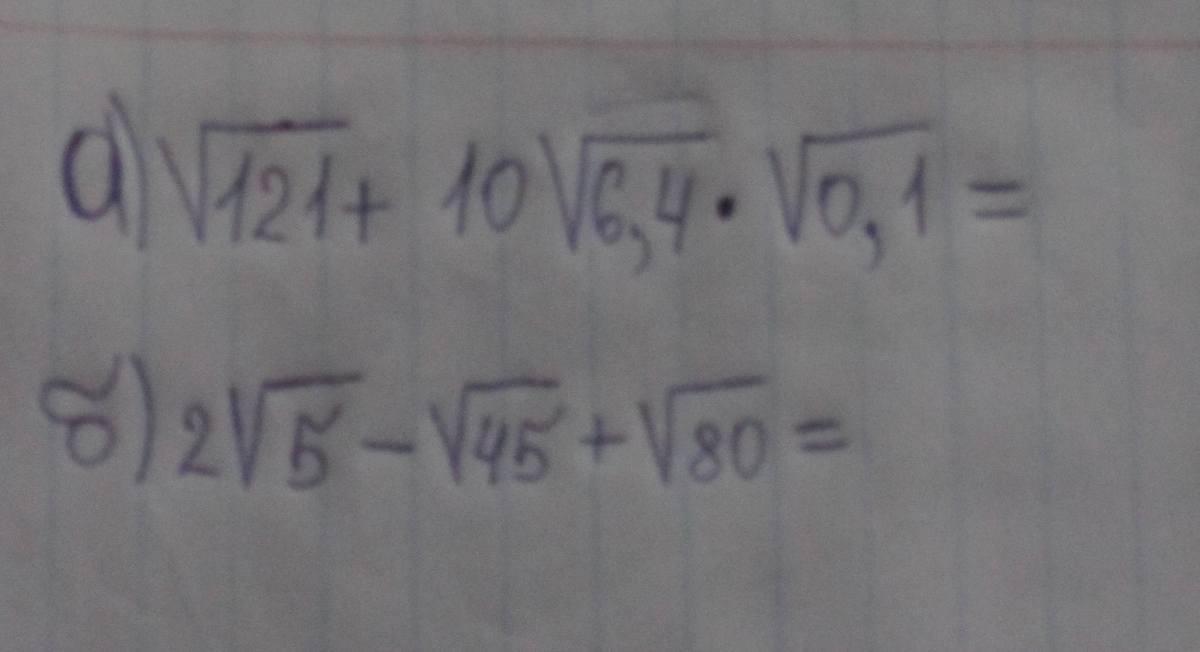 а) √121 + 10√6,4 · √0,1 =
б) 2√5 - √45 + √80 =